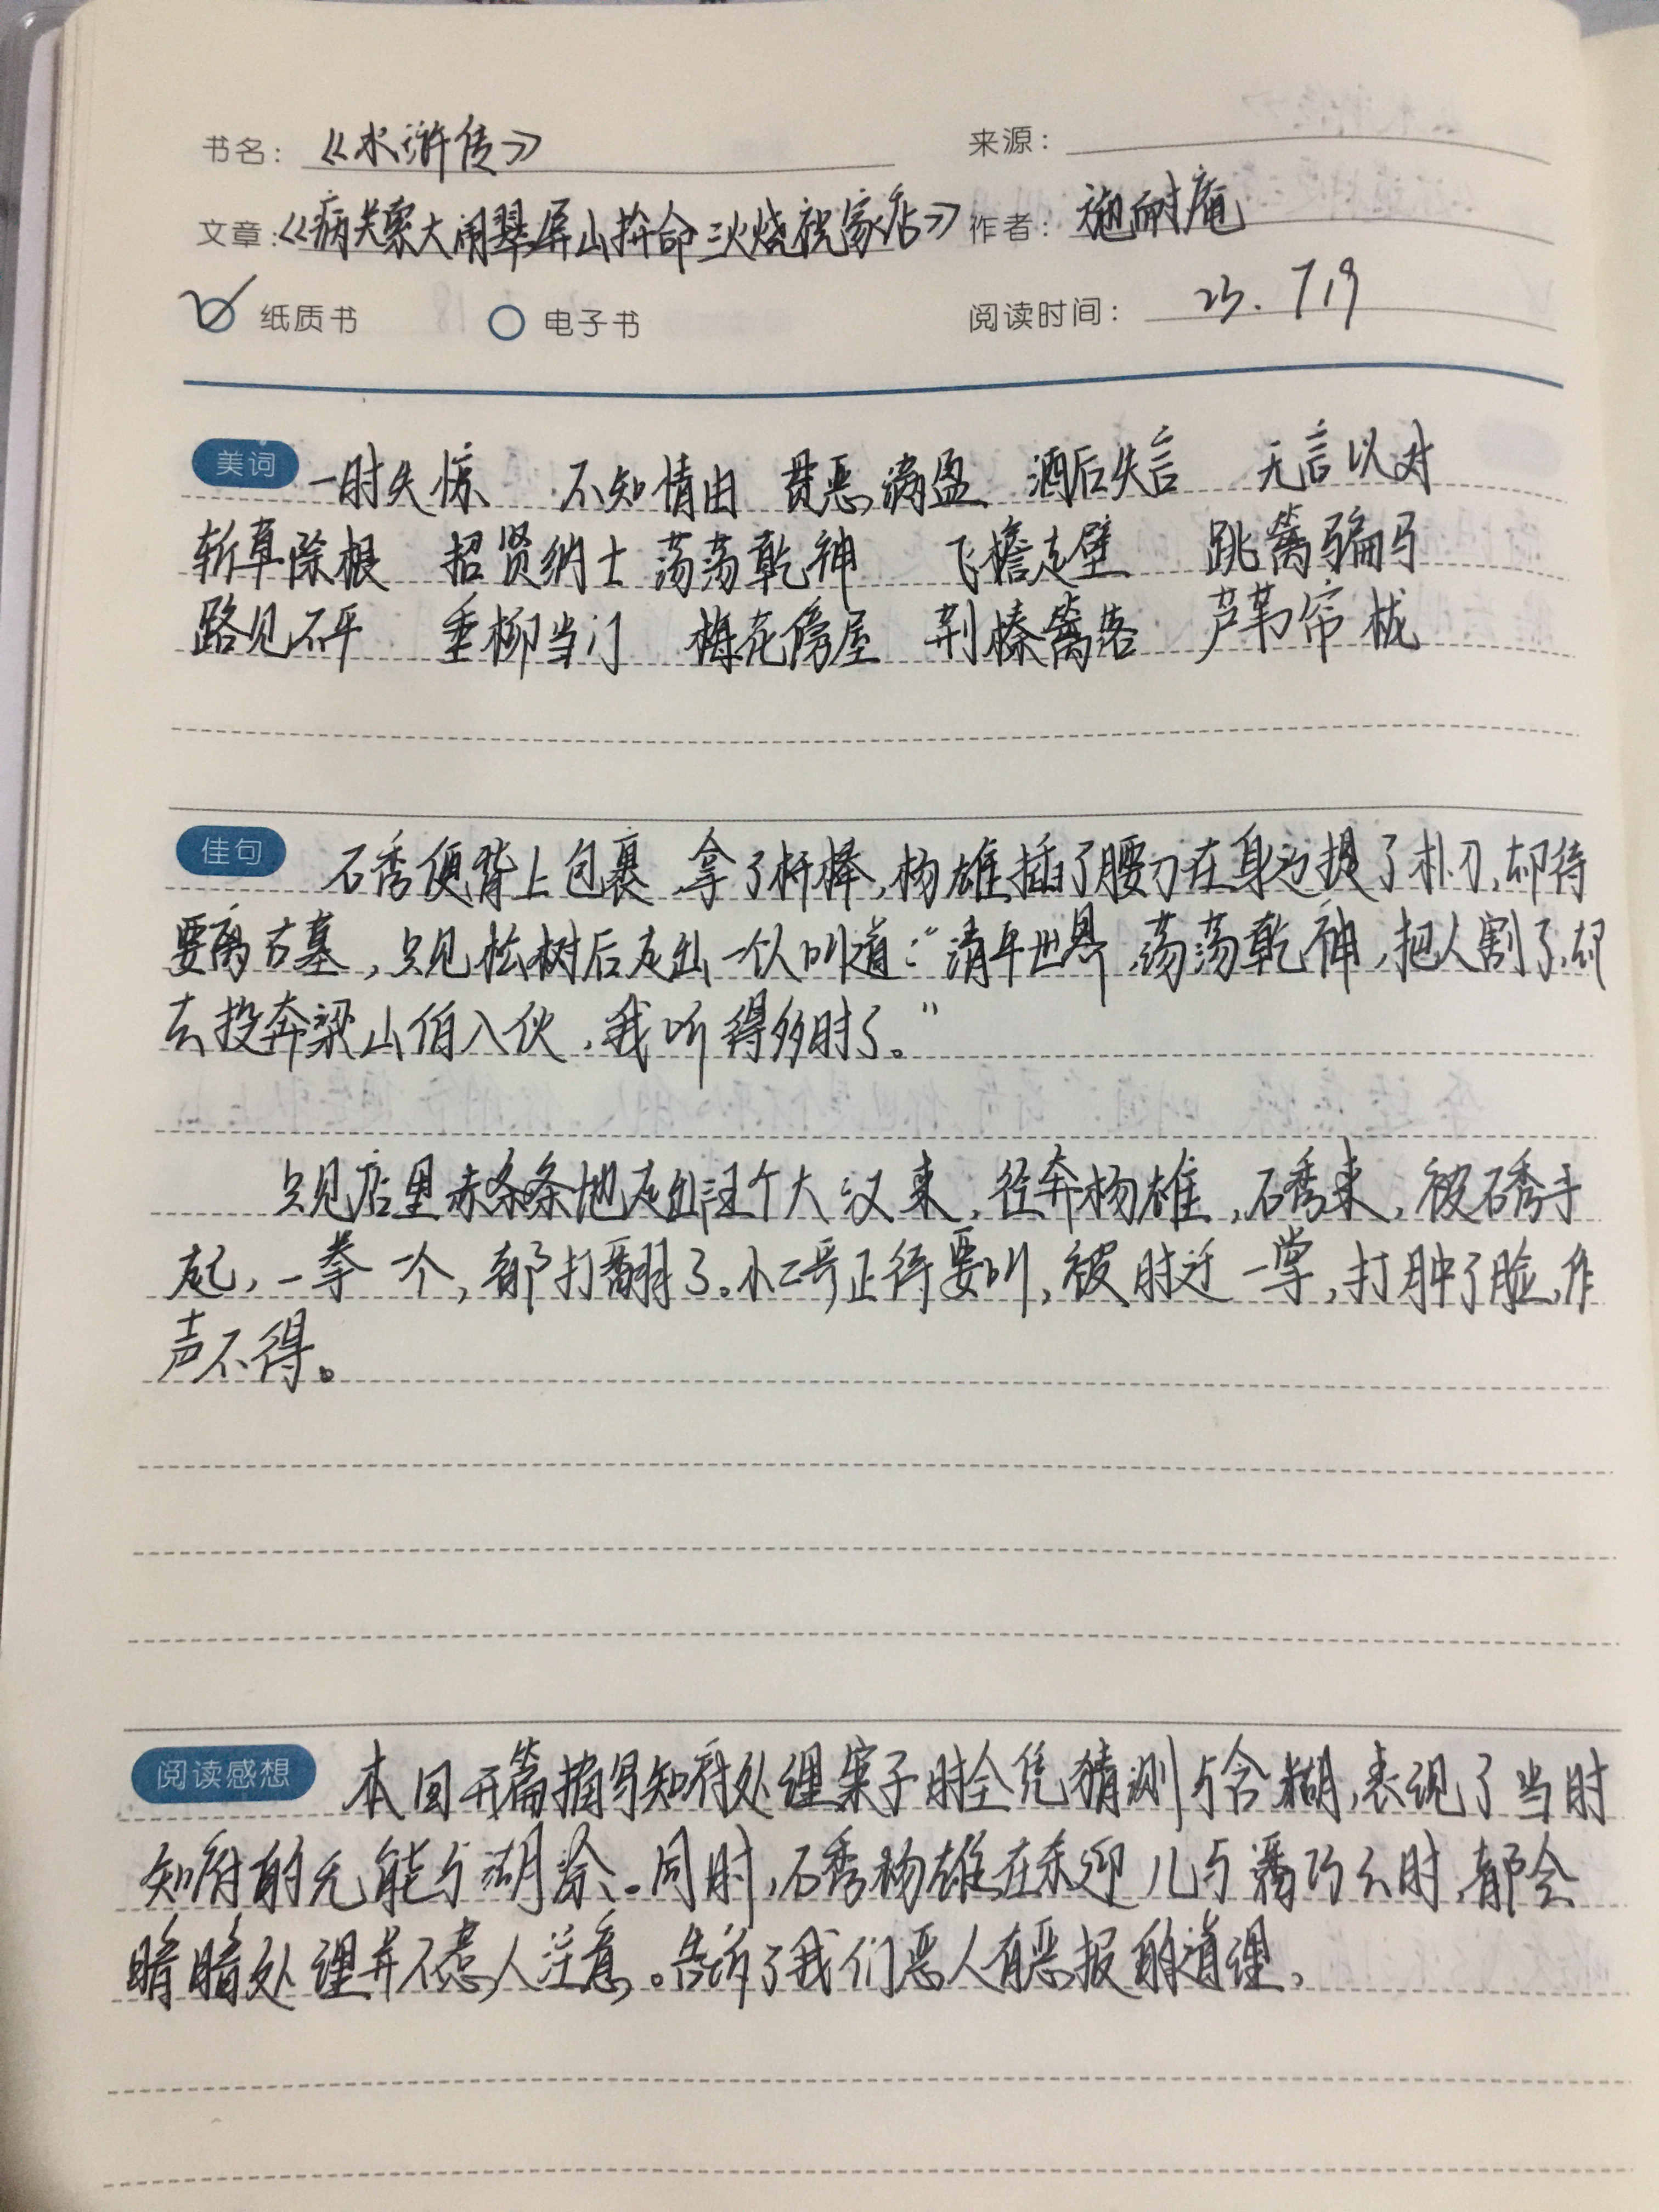 书名：《水浒传》 来源：
文章：《病关索大闹翠屏山拚命三火烧祝家店》 作者：施耐庵
纸质书 电子书 阅读时间：23.7.19
美词 一时失惊 不知情由 贯恶满盈 酒后失言 无言以对
斩草除根 招贤纳士 荡荡乾神 飞檐走壁 跳篱骗马
路见不平 垂柳当门 梅花傍屋 荆榛篱落 芦苇帘栊
佳句 石秀便背上包裹，拿了杆棒，杨雄插了腰刀在身边提了朴刀，却待
要离古墓，只见松树后走出一个人叫道：“清平世界，荡荡乾神，把人割了，却
去投奔梁山伯入伙，我听得多时了。”
只见店里赤条条地走出汪个大汉来，径奔杨雄，石秀来，被石秀手
起，一拳一个，都打翻了。小二哥正待要叫，被时迁一掌，打肿了脸，作
声不得。
阅读感想 本回开篇描写知府处理案子时全凭猜测与含糊，表现了当时
知府的无能与湖涂。同时，石秀杨雄在杀迎儿与潘巧云时，都会
暗暗处理并不惹人注意。告诉了我们恶人有恶报的道理，